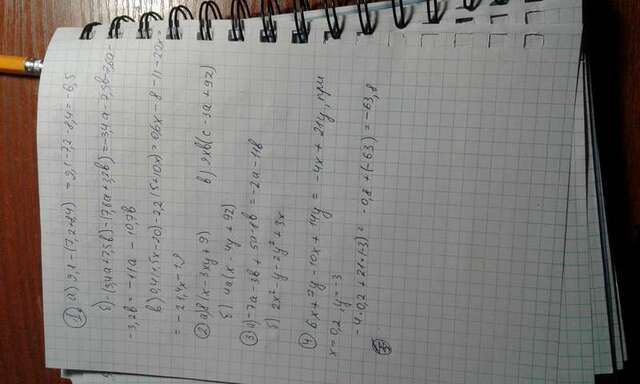 ① а) 9,1 - (7,2+8,4) = 9,1-7,2-8,4 = -6,5
б) -(3,4а+7,5в)-(7,6а+3,2в)=-3,4а-7,5в-7,6а-
-3,2в= -11а - 10,7в
в) 0,4(1,5х-20)-2,2(5+10х)=0,6х-8-11-22х=
= -21,4х-19
② а) 8(х-3ху+9) в) 9хв(с-3а+9z)
б) 4а(х-4у+9z)
③ а) -7а-3в+5а-8в=-2а-11в
б) 2х²-у-2у²+3х
④ 6х+7у-10х+14у= -4х+21у, при
х=0,2, у=-3
-4·0,2+21·(-3)= -0,8+(-63)=-63,8